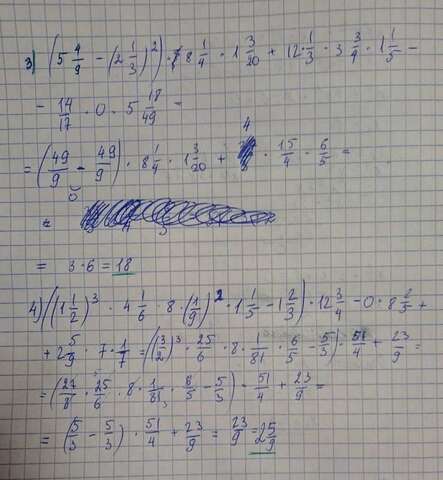 3) (5 4/9 - (2 1/3)^2) · 8 1/4 · 1 3/20 + 12 · 1/3 · 3 3/4 · 1 1/5 -
- 14/17 · 0 · 5 18/49 =
= (49/9 - 49/9) · 8 1/4 · 1 3/20 + 4 · 15/4 · 6/5 =
0
=
= 3·6 = 18
4) ((1 1/2)^3 · 4 1/6 · 8 · (1/9)^2 · 1 1/5 - 1 2/3) · 12 3/4 - 0 · 8 2/5 +
+ 2 5/9 · 7 · 1/7 = ((3/2)^3 · 25/6 · 8 · 1/81 · 6/5 - 5/3) · 51/4 + 23/9 =
= (27/8 · 25/6 · 8 · 1/81 · 6/5 - 5/3) · 51/4 + 23/9 =
= (5/3 - 5/3) · 51/4 + 23/9 = 23/9 = 2 5/9